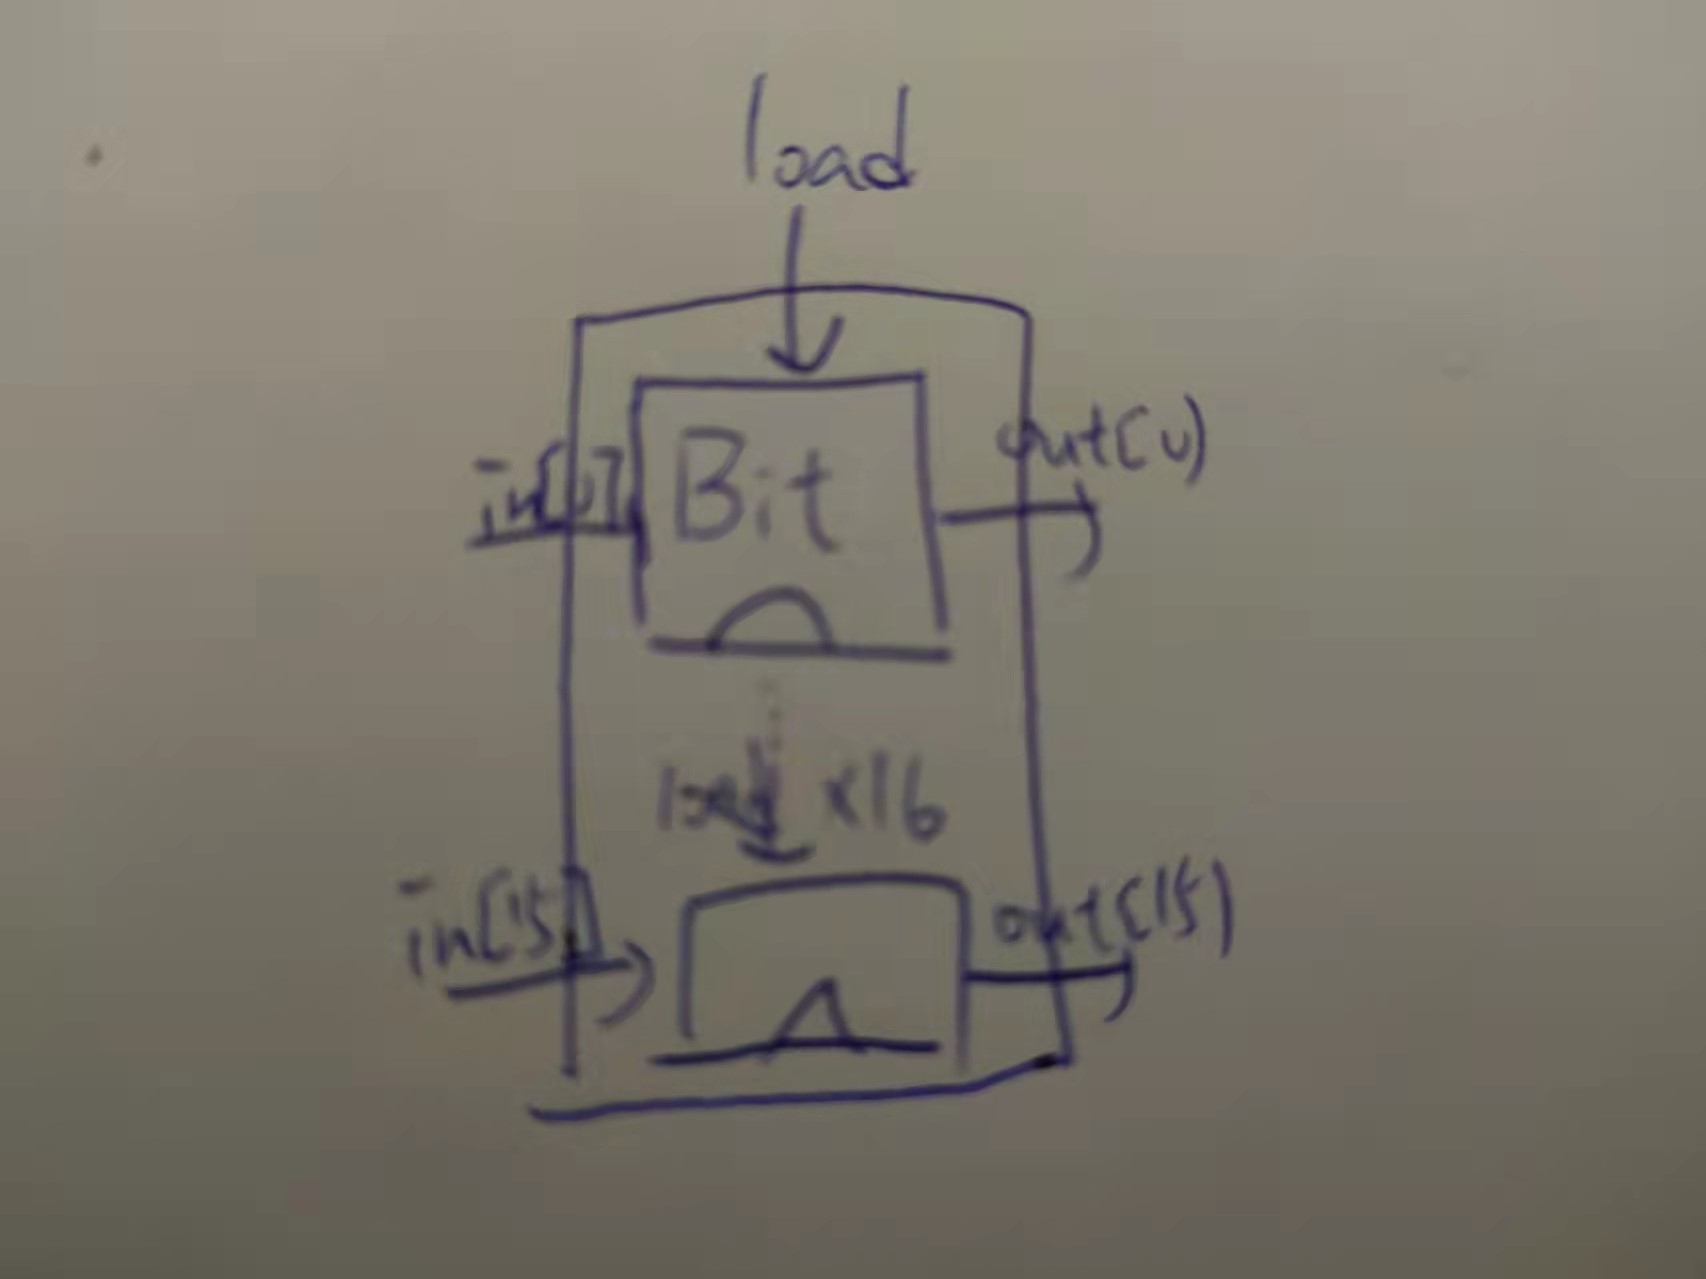 load
in[0] Bit out[0]
load x16
in[15] out[15]